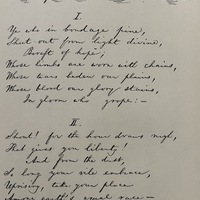 I.
Ye who in bondage pine,
Shut out from light divine,
Bereft of hope,
Whose limbs are worn with chains,
Whose tears bedew our plains,
Whose blood our glory stains,
In gloom who grope:—
II.
Shout! for the hour draws nigh,
That gives you liberty!
And from the dust,
So long your vile embrace,
Uprising, take your place
Among earth's noblest race—